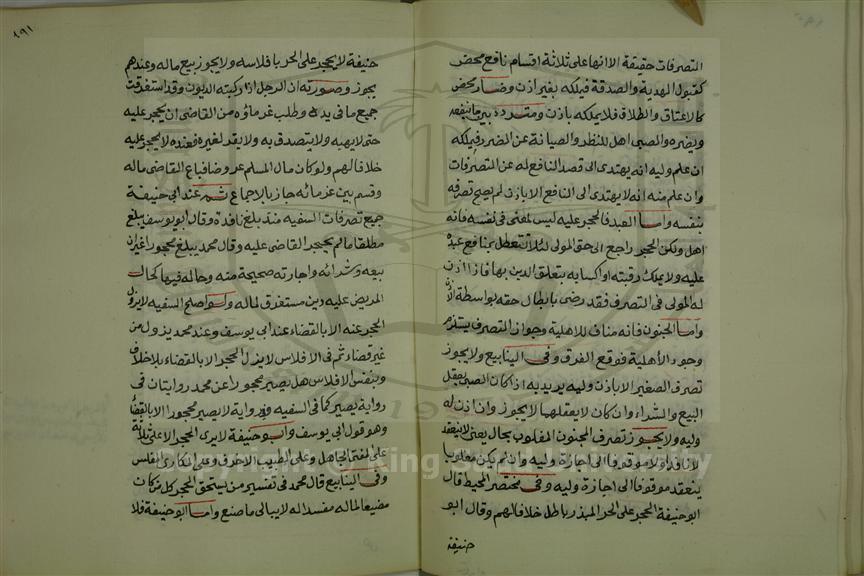 التصرفات حقيقة الا انها على ثلاثة اقسام نافع محض
كقبول الهدية والصدقة فيملكه بغير اذن وضار محض
كالاعتاق والطلاق فلا يملكه باذن ومتردد بين ما ينفعه
ويضره والصبى اهل للنظر والصيانة عن الضرر فيملكه
ان علم وليه انه يهتدى الى قصد النافع له عن التصرفات
وان علم منه انه لا يهتدى الى النافع الا باذن لم يصح تصرفه
بنفسه واما العبد فالحجر عليه ليس لمعنى فى نفسه فانه
اهل ولكن الحجر راجع الى حق المولى لئلا تتعطل منافع عبده
عليه ولا يملك رقبته او اكسابه بتعلق الدين بها فاذا اذن
له المولى فى التصرف فقد رضى بابطال حقه بواسطة
واما الجنون فانه مناف للاهلية وجواز التصرف يستلزم
وجود الأهلية فوقع الفرق وفى الينابيع ولا يجوز
تصرف الصغير الا باذن وليه يريد به اذا كان الصبى يعقل
البيع والشراء وان كان لا يعقلهما لا يجوز وان اذن له
وليه ولا يجوز تصرف المجنون المغلوب بحال يعنى لا ينعقد
لا نافذا ولا موقوفا الى اجازة وليه وان لم يكن مغلوبا
ينعقد موقوفا الى اجازة وليه وفى مختصر المحيط قال
ابو حنيفة الحجر على الحر المبذر باطل خلافا لهم وقال ابو
حنيفة
١٩١
حنيفة لا يحجر على الحر بافلاسه ولا يجوز بيع ماله وعندهم
يجوز وصورته ان الرجل اذا ركبته الديون وقد استغرقت
جميع ما فى يده وطلب غرماؤه من القاضى ان يحجر عليه
حتى لا يهبه ولا يتصدق به ولا يقد لغيره فعنده لا يحجر عليه
خلافا لهم ولو كان مال المسلم عروضا فباع القاضى ماله
وقسم بين غرمائه جاز بالاجماع ثم عند ابى حنيفة
جميع تصرفات السفيه منذ بلغ نافذة وقال ابو يوسف يبلغ
مطلقا ما لم يحجر القاضى عليه وقال محمد يبلغ محجورا غير ان
بيعه وشراءه واجارته صحيحة منه وحاله فيها كحال
المريض عليه دين مستغرق لماله ولو اصلح السفيه لا يزول
الحجر عنه الا بالقضاء عند ابى يوسف وعند محمد يزول من
غير قضاء ثم فى الافلاس لا يزول الحجر الا بالقضاء بلا خلاف
وبنفس الافلاس هل يصير محجورا عن محمد روايتان فى
رواية يصير كما فى السفيه وفى رواية لا يصير محجورا الا بالقضاء
وهو قول ابى يوسف وابو حنيفة لا يرى الحجر الا على ثلاثة
على المفتى الجاهل وعلى الطبيب الاخرق وعلى المكارى المفلس
وفى الينابيع قال محمد فى تفسير من يستحق الحجر كل من كان
مضيعا لماله مفسدا له لا يبالى ما صنع واما ابو حنيفة فلا
Copyright © King Saud University